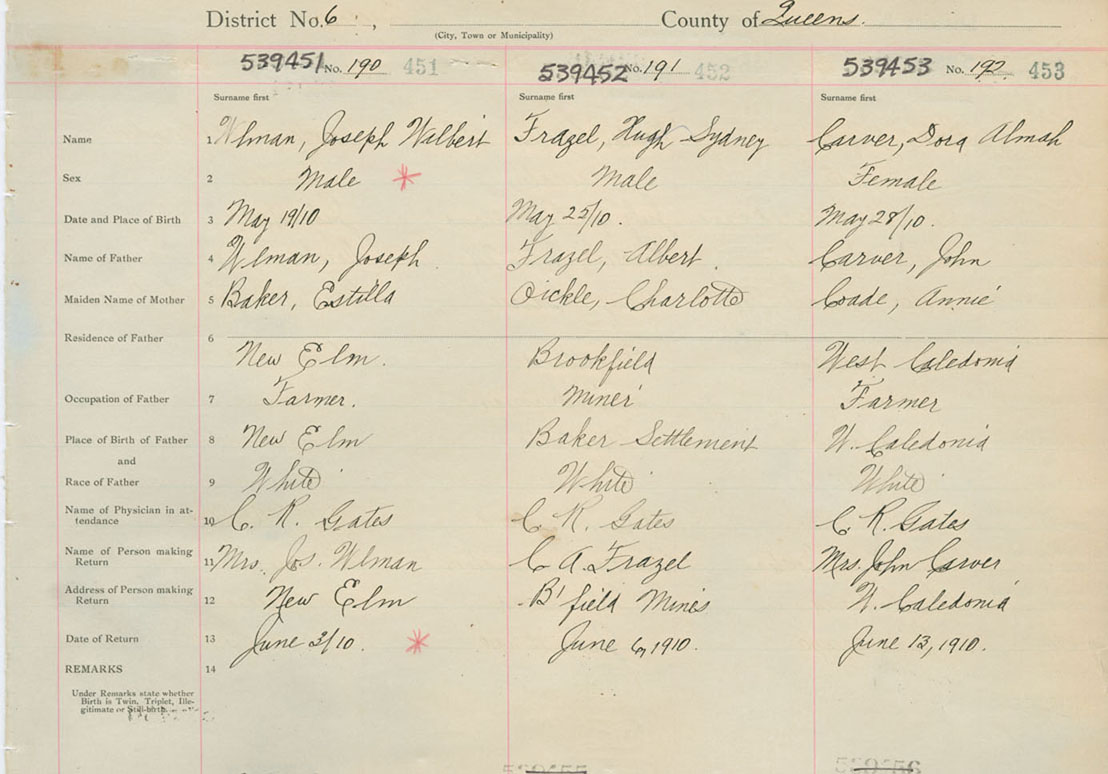 District No. 6, County of Queens.
(City, Town or Municipality)
539451 No. 190 451 539452 No. 191 452 539453 No. 192 453
Surname first Surname first Surname first
Name 1 Wlman, Joseph Walbert Frazel, Hugh Sydney Carver, Dora Almah
Sex 2 Male * Male Female
Date and Place of Birth 3 May 19/10 May 25/10. May 28/10.
Name of Father 4 Wlman, Joseph Frazel, Albert Carver, John
Maiden Name of Mother 5 Baker, Estilla Oickle, Charlotte Coade, Annie
Residence of Father 6
New Elm. Brookfield West Caledonia
Occupation of Father 7 Farmer. Miner Farmer
Place of Birth of Father 8 New Elm Baker Settlement W. Caledonia
and
Race of Father 9 White White White
Name of Physician in at-
tendance 10 C. R. Gates C R. Gates C R. Gates
Name of Person making
Return 11 Mrs. Jos. Wlman C A. Frazel Mrs. John Carver
Address of Person making
Return 12 New Elm B'field Mines W. Caledonia
Date of Return 13 June 3/10. * June 6, 1910. June 13, 1910.
REMARKS 14
Under Remarks state whether
Birth is Twin, Triplet, Ille-
gitimate or Still-birth.